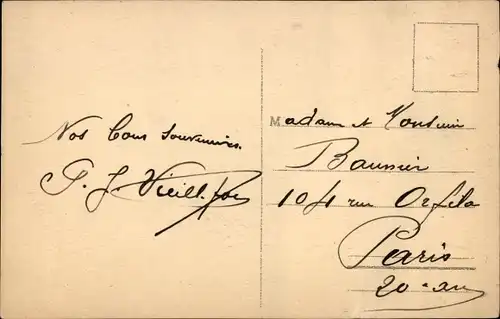 Nos bons souvenirs.
P. J. Vieill
Madame et Monsieur
Baumier
104 rue Orfila
Paris
20e